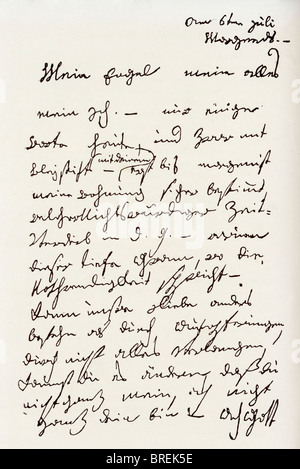 am 6ten juli
Morgends. –
Mein Engel mein alles
mein Ich. – nur einige
Worte heute, und zwar mit
Bleystift – mit deinem – erst bis morgen ist
meine wohnung sicher bestimmt
welcher Nichtswürdiger Zeit-
Verderb in d. g. – warum
dieser tiefe Gram, wo die
Nothwendigkeit spricht –
Kann unsre Liebe anders
bestehn als durch Aufopferungen,
durch nicht alles verlangen,
kannst du es ändern, daß du
nicht ganz mein, ich nicht
ganz dein bin – Ach Gott
BREK5E